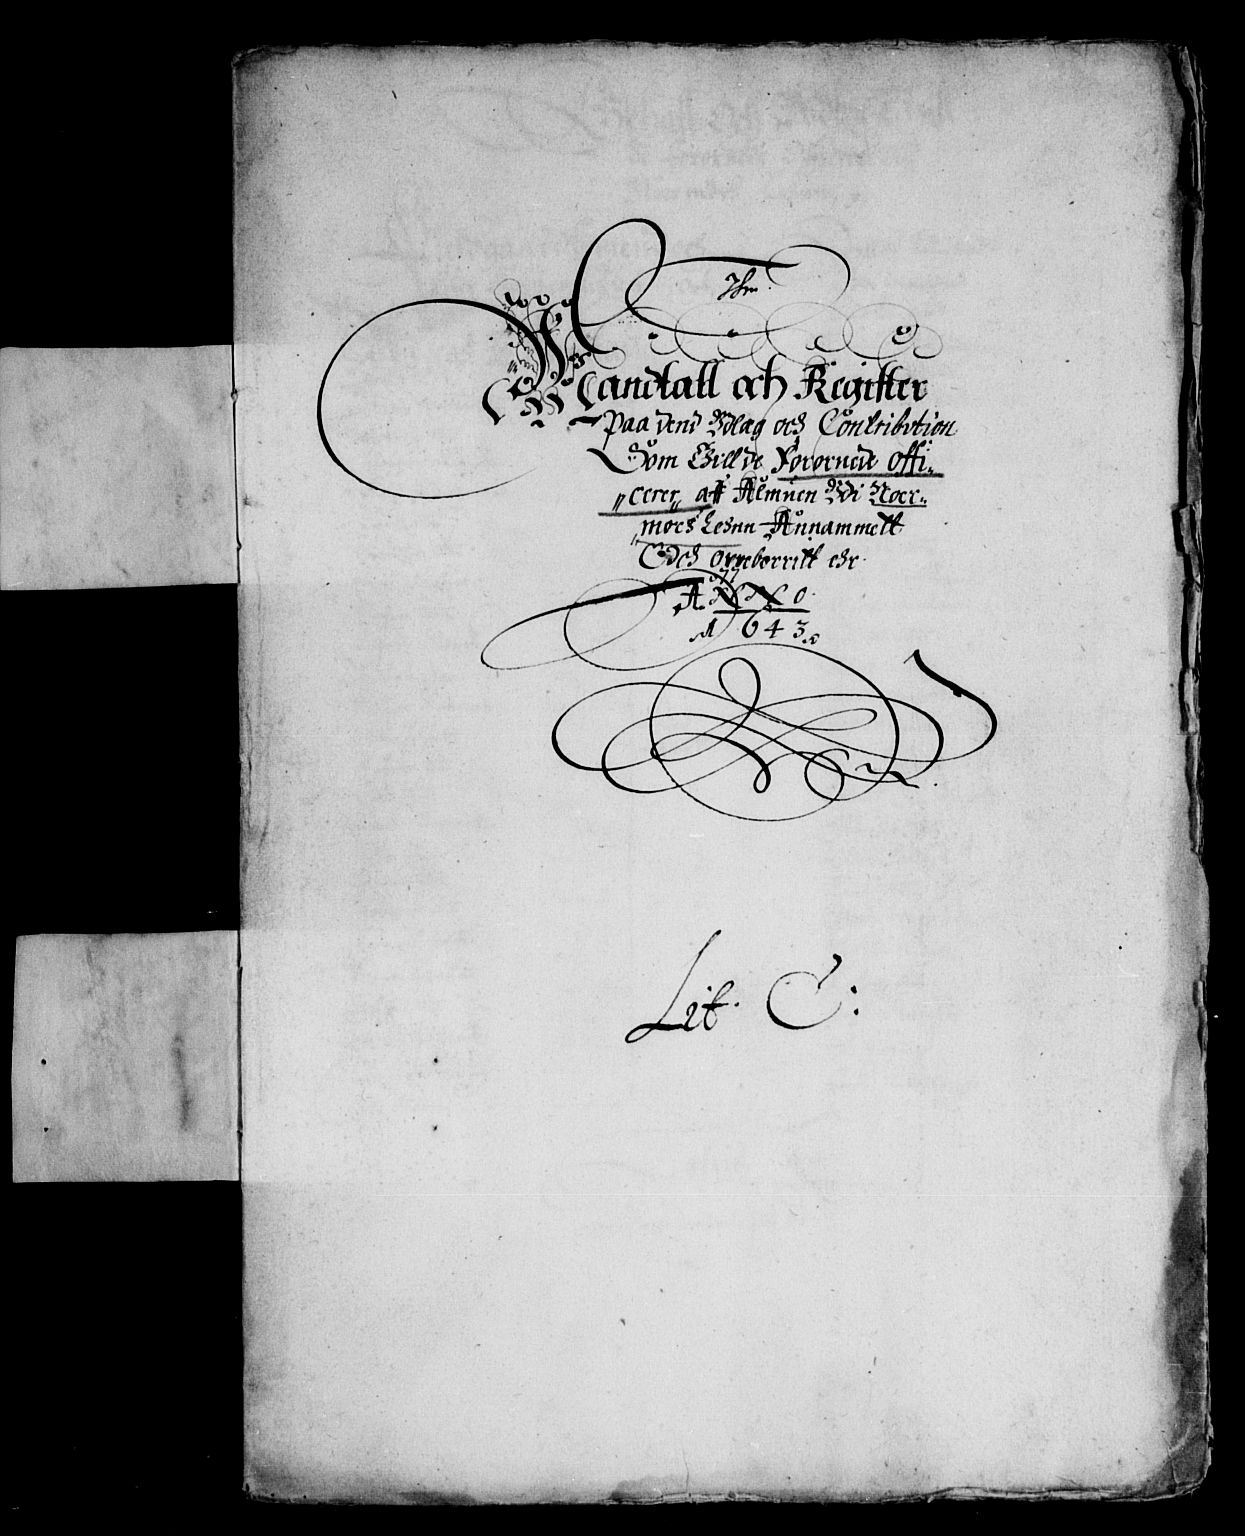 Mandtall och Register
Paa dend Vdlag och Contribution
Som Till de Forornede Offi-
cerer, aff Almuen Vdi Noer-
mørs Lehnn Annammett
Och oppeborritt ehr.
ANNO
1643.
Lit. C: